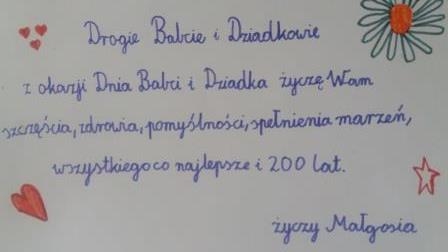 Drogie Babcie i Dziadkowie
z okazji Dnia Babci i Dziadka życzę Wam
szczęścia, zdrowia, pomyślności, spełnienia marzeń,
wszystkiego co najlepsze i 200 lat.
życzy Małgosia